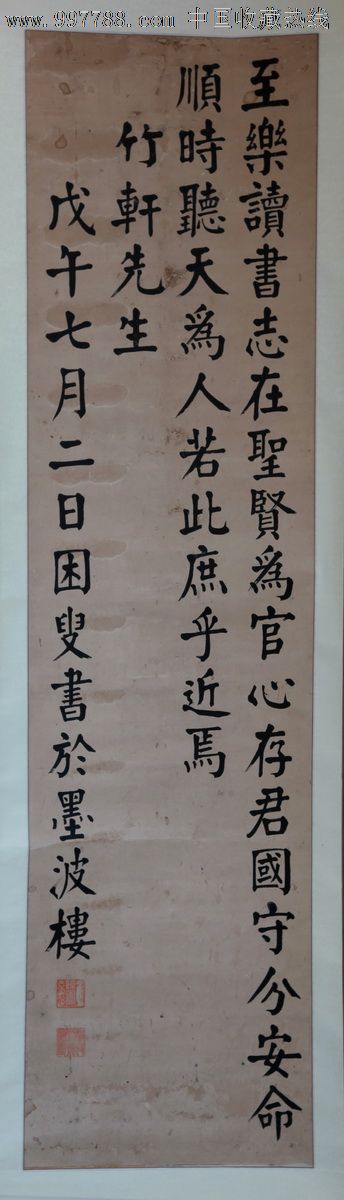 www.997788.com 中国收藏热线
至樂讀書志在聖賢爲官心存君國守分安命
順時聽天爲人若此庶乎近焉
竹軒先生
戊午七月二日困叟書於墨波樓